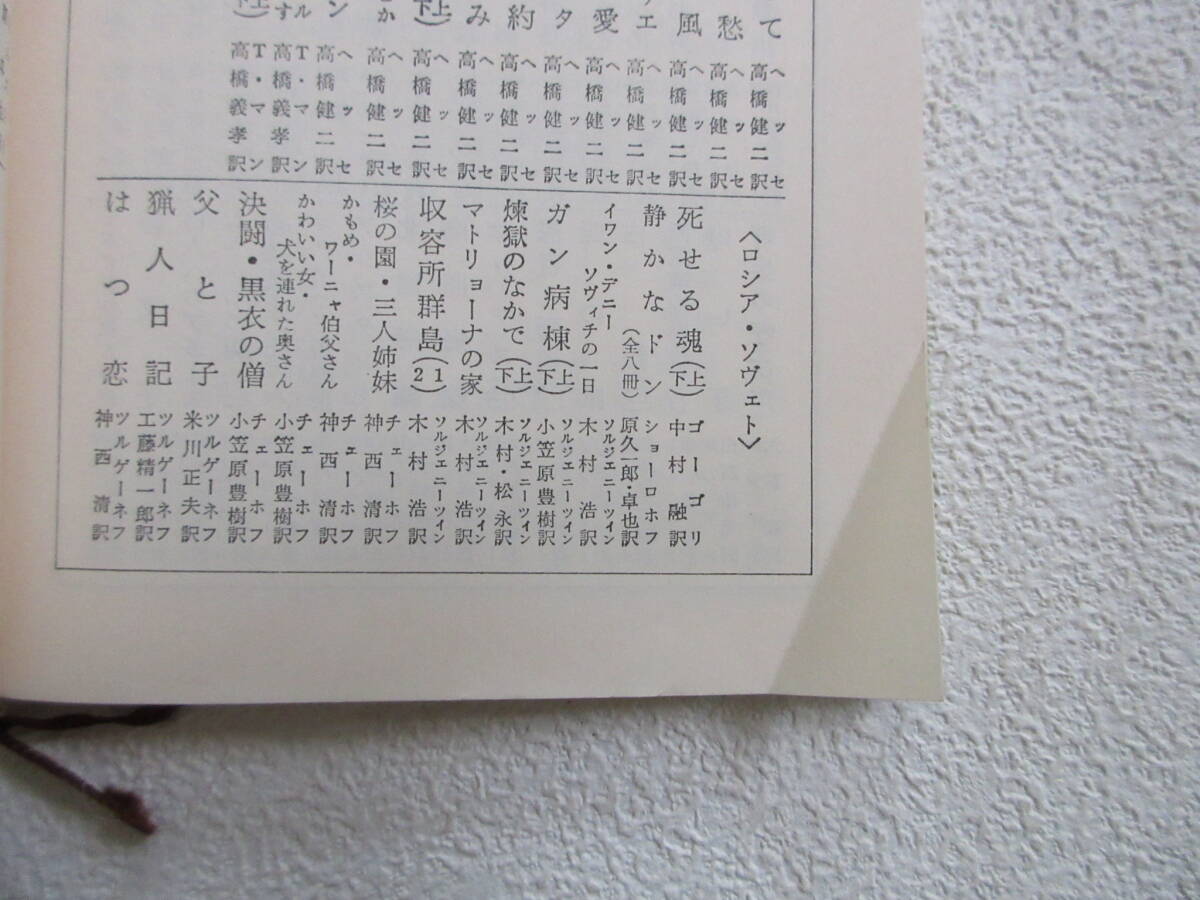 て ヘッセ 高橋健二訳
愁 ヘッセ 高橋健二訳
風 ヘッセ 高橋健二訳
エ ヘッセ 高橋健二訳
愛 ヘッセ 高橋健二訳
タ ヘッセ 高橋健二訳
約 ヘッセ 高橋健二訳
み ヘッセ 高橋健二訳
(上下) ヘッセ 高橋健二訳
か ヘッセ 高橋健二訳
ン ヘッセ 高橋健二訳
T・マン 高橋義孝訳
T・マン 高橋義孝訳
〈ロシア・ソヴェト〉
死せる魂(上下) ゴーゴリ 中村融訳
静かなドン(全八冊) ショーロホフ 原久一郎・卓也訳
イワン・デニーソヴィチの一日 ソルジェニーツィン 木村浩訳
ガン病棟(上下) ソルジェニーツィン 小笠原豊樹訳
煉獄のなかで(上下) ソルジェニーツィン 木村・松永訳
マトリョーナの家 ソルジェニーツィン 木村浩訳
収容所群島(1 2) ソルジェニーツィン 木村浩訳
桜の園・三人姉妹 チェーホフ 神西清訳
かもめ・ワーニャ伯父さん チェーホフ 神西清訳
かわいい女・犬を連れた奥さん チェーホフ 小笠原豊樹訳
決闘・黒衣の僧 チェーホフ 小笠原豊樹訳
父と子 ツルゲーネフ 米川正夫訳
猟人日記 ツルゲーネフ 工藤精一郎訳
はつ恋 ツルゲーネフ 神西清訳